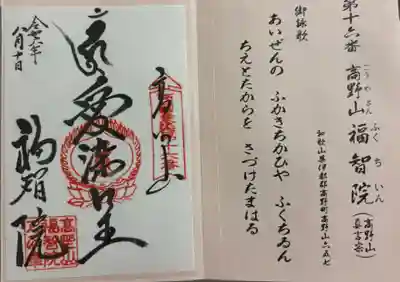 第十六番 高野山 福智院 (高野山真言宗)
こうやさん ふくちいん
和歌山県伊都郡高野町高野山六五七
御詠歌
あいぜんの ふかきちかひや ふくちゐん
ちえとたからを さづけたまはる
高野山
愛染明王
福智院
令和六年
八月十日